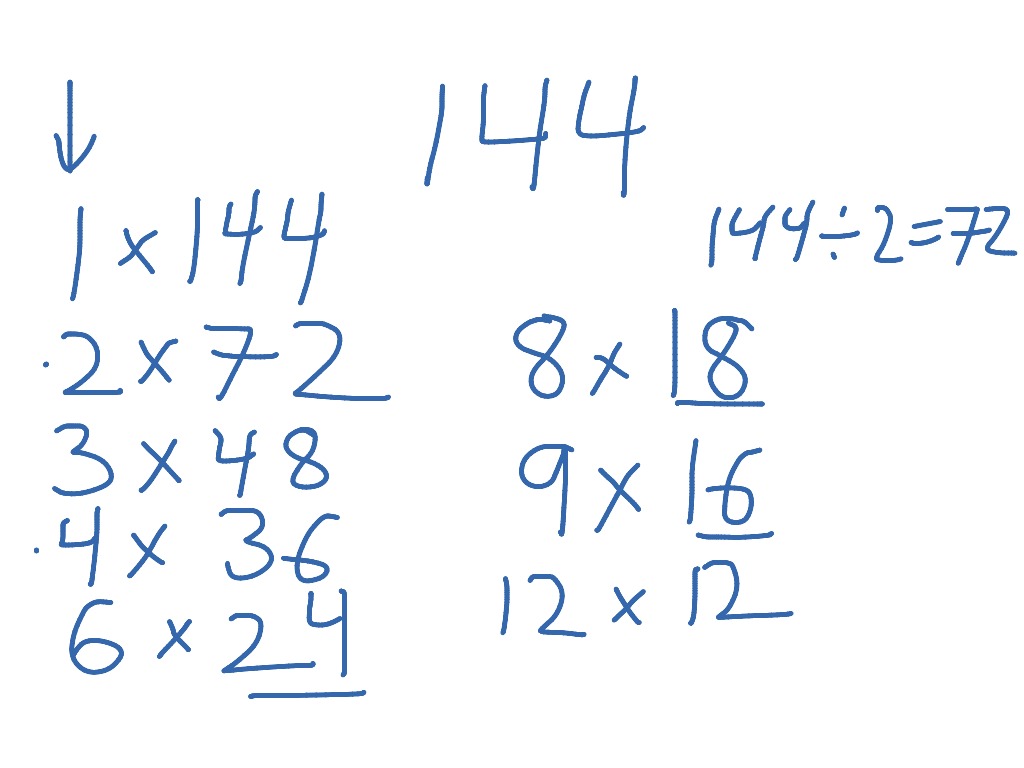 144
144÷2=72
1 x 144
2 x 72
3 x 48
4 x 36
6 x 24
8 x 18
9 x 16
12 x 12